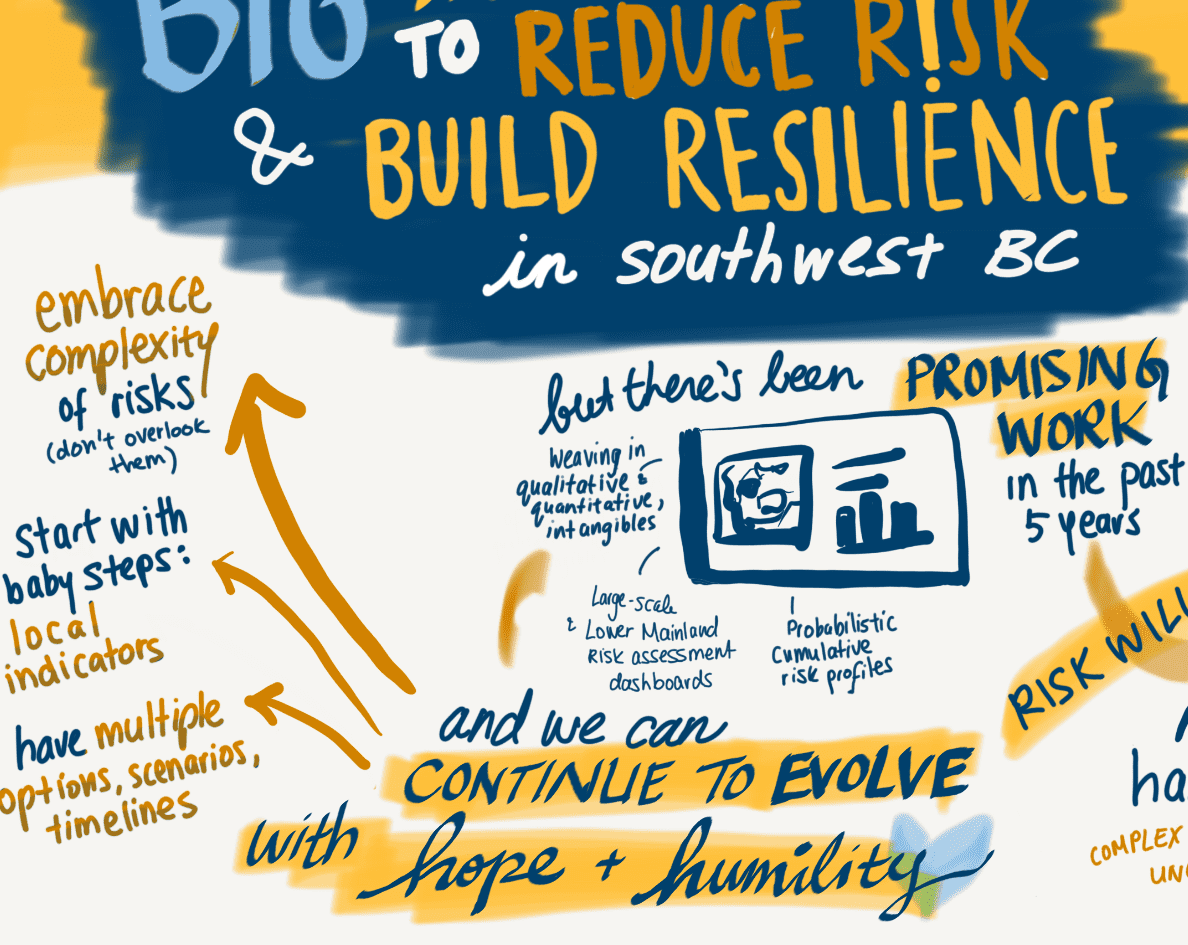 BIG
TO REDUCE RISK
& BUILD RESILIENCE
in southwest BC
embrace
complexity
of risks
(don't overlook
them)
start with
baby steps:
local
indicators
have multiple
options, scenarios,
timelines
but there's been PROMISING
WORK
in the past
5 years
Weaving in
qualitative &
quantitative,
intangibles
Large-scale
& Lower Mainland
Risk assessment
dashboards
Probabilistic
Cumulative
risk profiles
and we can
CONTINUE TO EVOLVE
with hope + humility
RISK WILL
ha
COMPLEX
UNC